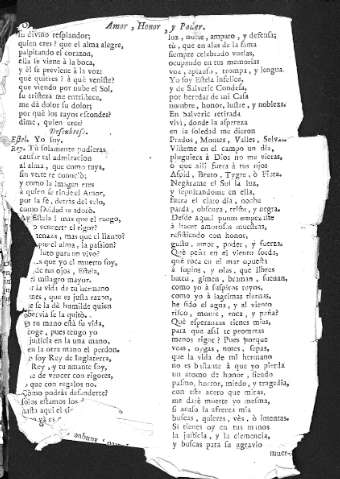 Amor, Honor, y Poder.
tu divino resplandor;
quien eres? que el alma alegre,
palpitando el corazon,
ella se viene à la boca,
y èl se previene à la voz:
què quieres? à què veniste?
que viendo por nube el Sol,
su tristeza me entristece,
me dà dolor su dolor;
por què los rayos escondes?
dime, quien eres?
Descubrese.
Estel. Yo soy.
Rey. Tù solamente pudieras
causar tal admiracion
al alma, que como tuya,
sin verte te conociò;
y como la imagen eres
à quien se rinde el Amor,
por la fè, detràs del velo,
como Deidad te adorò.
Ay Estela! mas que el ruego,
vencerte el rigor?
mas que el llanto?
por el alma, la passion?
luto para un vivo?
que yo el muerto soy,
de tus ojos, Estela,
milagro mayor.
la vida de tu hermano
que es justa razon,
se la dè humilde quien
sobervia se la quitò.
tu mano està su vida,
coge, pues tengo yo
justicia en la una mano,
en la otra mano el perdon.
soy Rey de Inglaterra,
Rey, y tu amante soy,
de vencer con rigores,
que con regalos no.
Còmo podràs defenderte?
solos estamos los dos,
hasta aqui el
luz, norte, amparo, y defensa;
tù, que en alas de la fama
siempre celebrado vuelas,
ocupando en tus memorias
voz, aplauso, trompa, y lengua.
Yo soy Estela infelice,
y de Salveric Condesa,
por heredar de mi Casa
nombre, honor, lustre, y nobleza.
En Salveric retirada
vivì, donde la aspereza
en la soledad me dieron
Prados, Montes, Valles, Selvas.
Visteme en el campo un dia,
pluguiera à Dios no me vieras,
ò que alli fuera à tus ojos
Aspid, Bruto, Tygre, ò Fiera.
Negàrame el Sol la luz,
y sepultàrame en ella,
fuera el claro dia, noche
parda, obscura, triste, y negra.
Desde aquel punto empezaste
à hacer amorosas muestras,
resistiendo con honor,
gusto, amor, poder, y fuerza.
Què peña en el viento sorda,
què roca en el mar opuesta
à suspiros, y olas, que fieros
baten, gimen, braman, suenan,
como yo à suspiros tuyos,
como yo à lagrimas tiernas,
he sido el agua, y al viento
risco, monte, roca, y peña?
Què esperanzas tienes mias,
para que assi te prometas
menos rigor? Pues porque
veas, oygas, notes, sepas,
que la vida de mi hermano
no es bastante à que yo pierda
un atomo de honor, siendo
pasmo, horror, miedo, y tragedia,
con este acero que miras,
me darè muerte yo mesma,
si acaso la afrenta mia
buscas, quieres, vès, ò intentas.
Si tienes oy en tus manos
la justicia, y la clemencia,
y buscas para su agravio
muer-